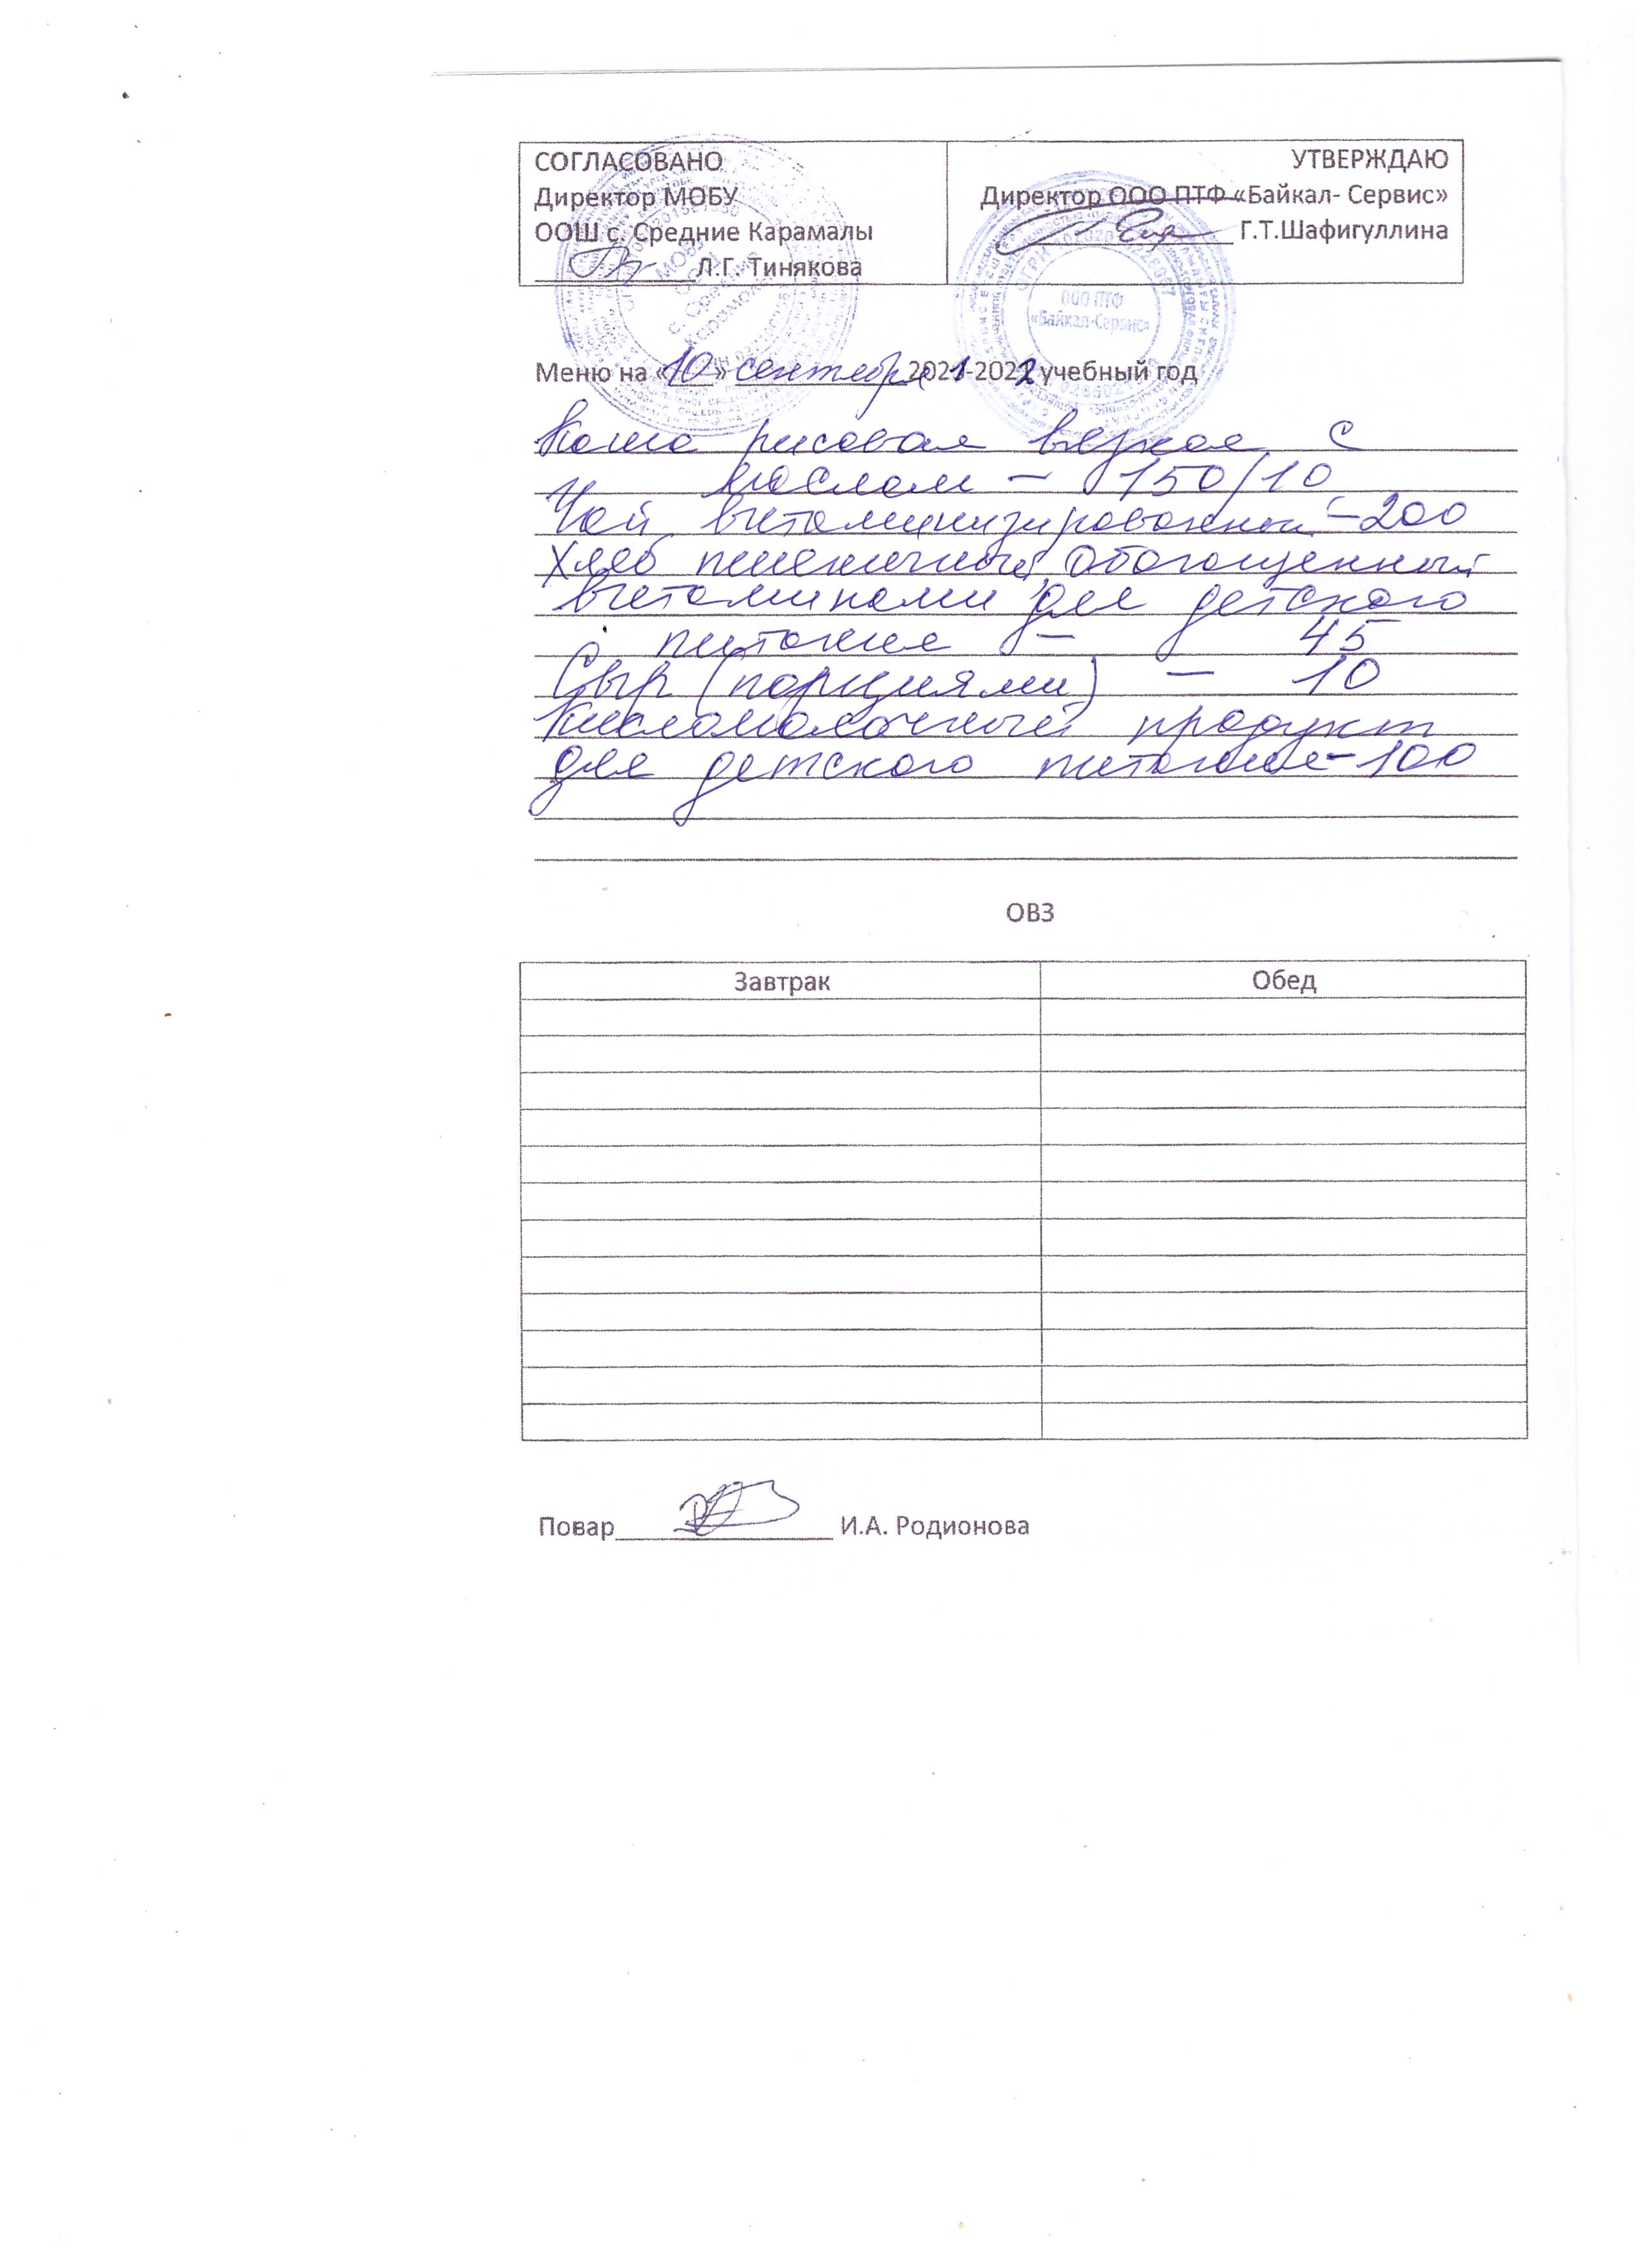 СОГЛАСОВАНО
Директор МОБУ
ООШ с. Средние Карамалы
Л.Г. Тинякова
УТВЕРЖДАЮ
Директор ООО ПТФ «Байкал- Сервис»
Г.Т.Шафигуллина
ООО ПТФ
«Байкал-Сервис»
Меню на «10» сентября 2021-2022 учебный год
Каша рисовая вязкая с
маслом - 150/10
Чай витаминизированный -200
Хлеб пшеничный, обогащенный
витаминами для детского
питания - 45
Сыр (порциями) - 10
Кисломолочный продукт
для детского питания-100
ОВЗ
Завтрак Обед
Повар И.А. Родионова